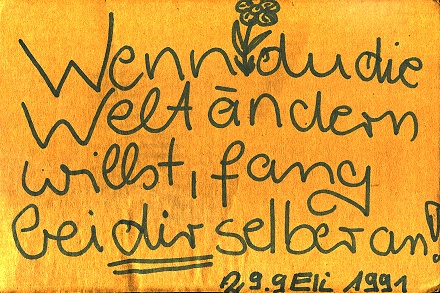 Wenn du die
Welt ändern
willst, fang
bei dir selber an!
29.9 Eli 1991